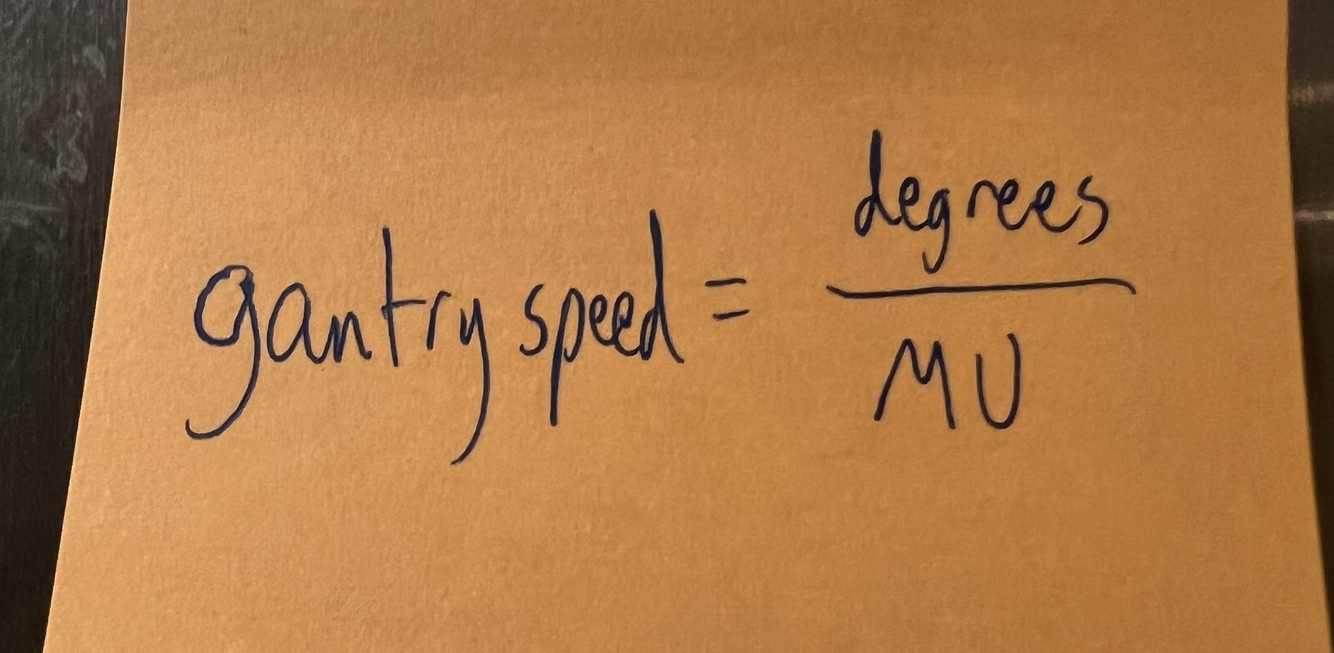 gantry speed = degrees / MU